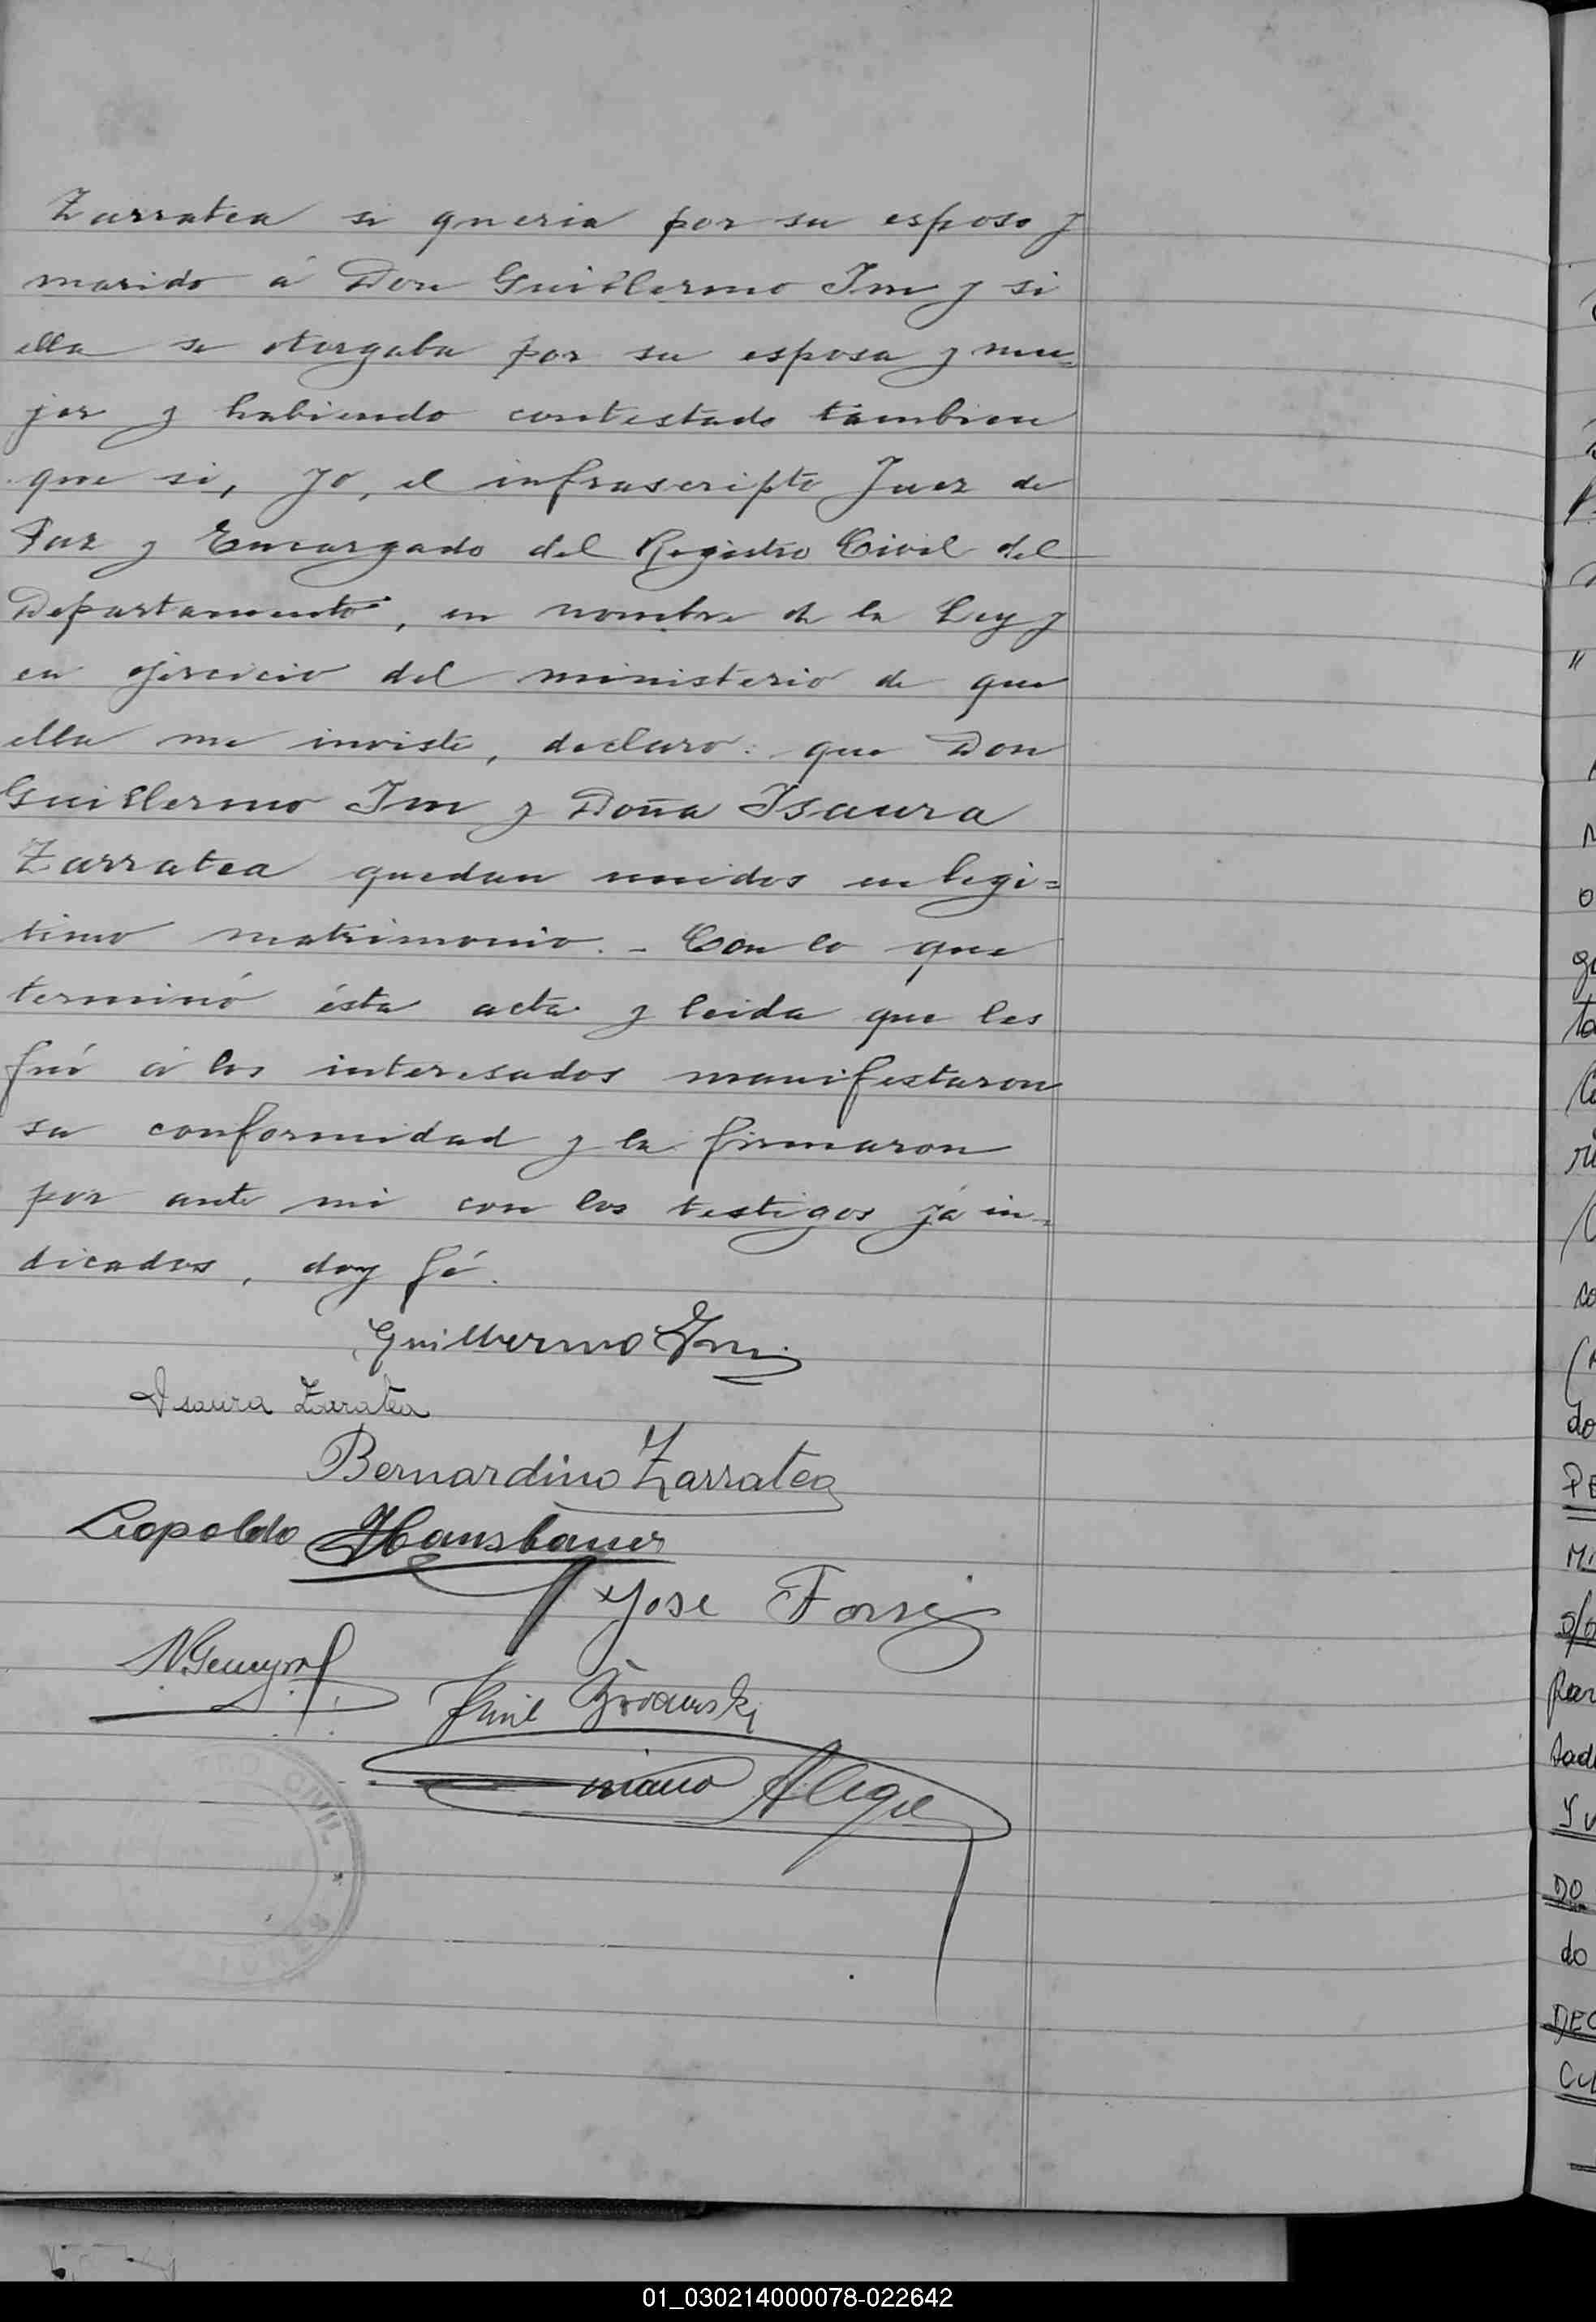 Zarratea si queria por su esposo y
marido á Don Guillermo Im y si
ella se otorgaba por su esposa y mu=
jer y habiendo contestado tambien
que si, yo, el infrascripto Juez de
Paz y Encargado del Registro Civil del
Departamento, en nombre de la Ley y
en ejercicio del ministerio de que
ella me inviste, declaro: que Don
Guillermo Im y Doña Isaura
Zarratea quedan unidos en legi=
timo matrimonio. - Con lo que
terminó ésta acta y leida que les
fué á los interesados manifestaron
su conformidad y la firmaron
por ante mi con los testigos yá in=
dicados, doy fé.
Guillermo Im
Isaura Zaratea
Bernardino Zarratea
Leopoldo
Jose
Alegre
CIVIL
01_030214000078-022642